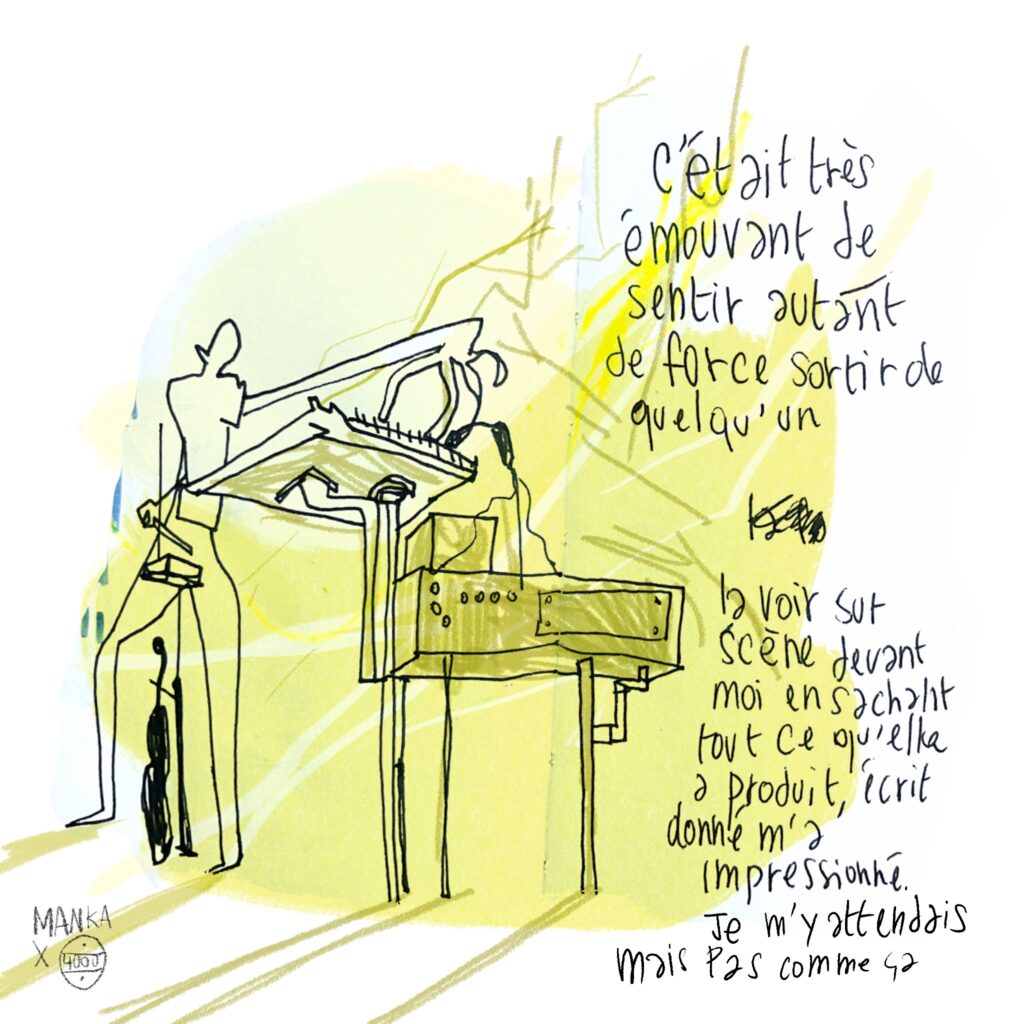 C'était très
émouvant de
sentir autant
de force sortir de
quelqu'un
la voir sur
scène devant
moi en sachant
tout ce qu'elka
a produit, écrit
donné m'a
impressionné.
Je m'y attendais
mais pas comme ça
MANKA
X 4000